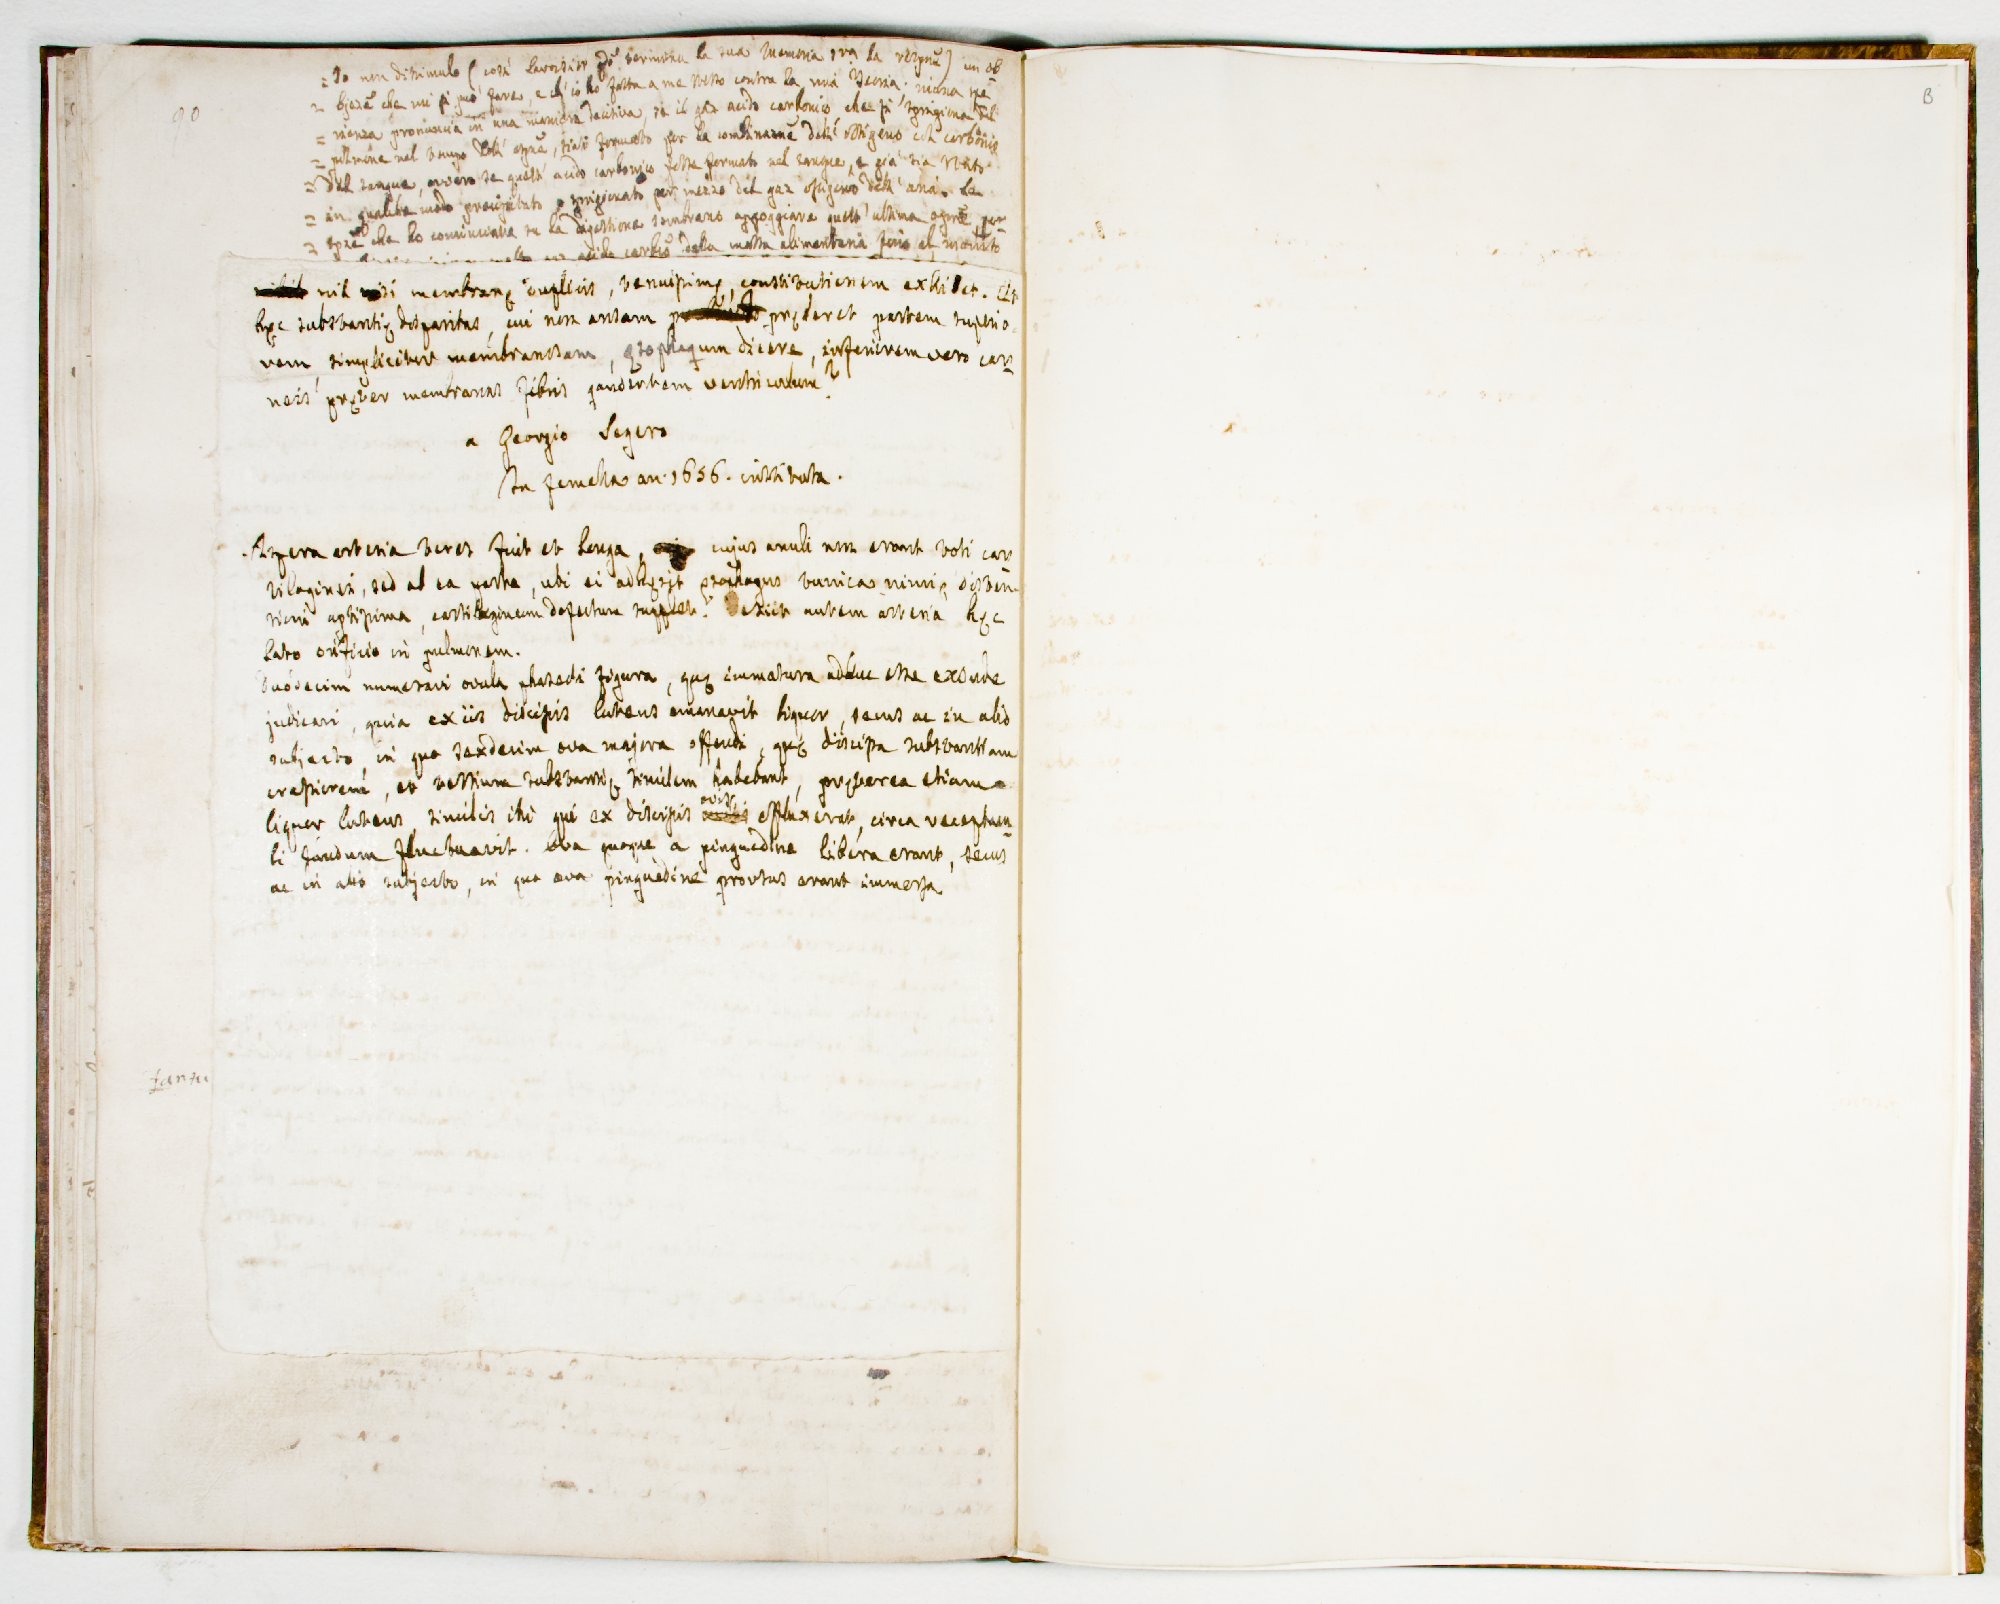 90
B
= Io non dissimulo (così Lavoisier termina la sua Memoria la respirẽ) un ob
= bjezẽ che mi si può fare, e ch'io ho fatta a me stesso contra la mia Teoria. niuna spe
= rienza pronuncia in una maniera decisiva, se il gaz acido carbonico che si sprigiona dal
= polmone nel tempo dell' espirẽ, siasi formato per la combinazẽ dell' ossigeno col carbonio
= del sangue, ovvero se quest' acido carbonico fosse formato nel sangue, e già sia stato
= in qualche modo precipitato e sprigionato per mezzo del gaz ossigeno dell' aria. Le
= che ho cominciate su la digestione sembrano appoggiare quest' ultima opinẽ, per
gaz acido carbco dalla massa alimentaria fino al
nil nisi membranę duplicis, tenuissimę, constitutionem exhibet. Et
hęc substantię disparitas, cui non ansam pręberet partem superio
rem simpliciter membranosam, ęsophagum dicere, inferiorem vero car
neis pręter membranas fibris gaudentem ventriculum?
a Georgio Segero
In femella an. 1656. instituta.
Aspera arteria teres fuit et longa, cujus anuli non erant toti car
tilaginei, sed ab ea parte, ubi ei adhęsit ęsophagus tunicas nimię disten
sioni aptissima, cartilagineum defectum supplet. Desiit autem arteria hęc
lato orificio in pulmonem.
Duodecim numeravi ovula phaseoli figura, quę immatura adhuc esse exinde
judicavi, quia ex iis discissis luteus emanavit liquor, secus ac in alio
subjecto in quo sexdecim ova majora offendi, quę discissa substantiam
crassiorem, et testium substantię similem habebant, pręterea etiam
liquor luteus, similis ibi qui ex discissis ovis effluxerat, circa receptacu
li fundum fluctuavit. Ova quoque a pinguedine libera erant, secus
ac in alio subjecto, in quo ova pinguedine prorsus erant immersa